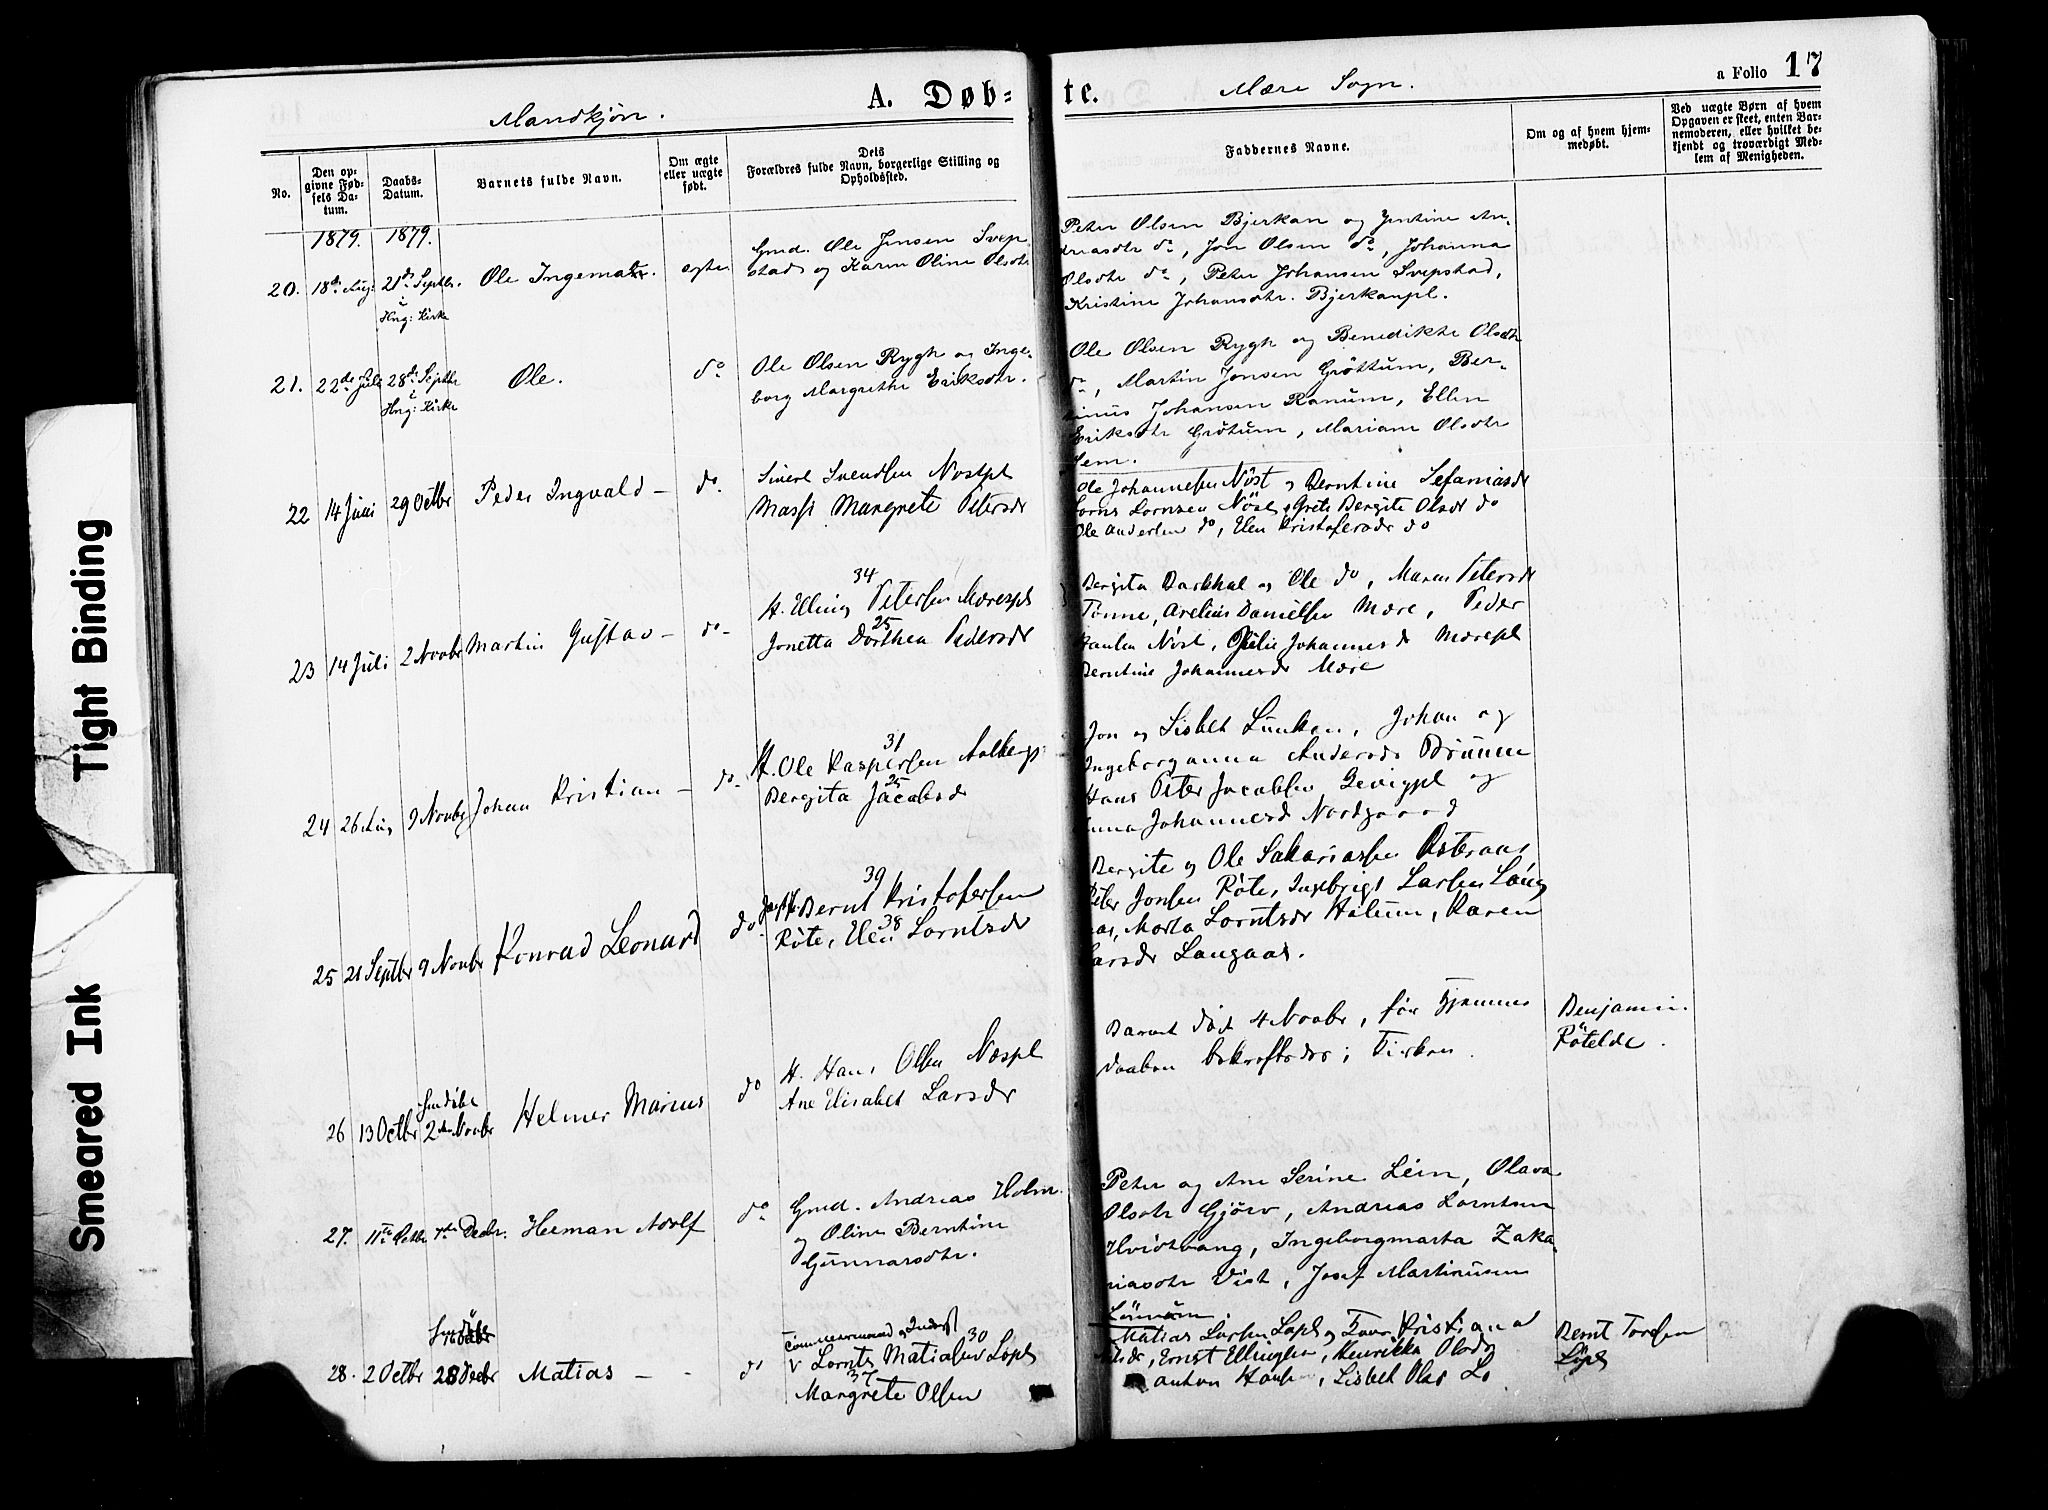 Tight Binding
Smeared Ink
A. Døb=
te.
Mandkjøn.
Mære Sogn.
a Folio 17
No.
Den op-
givne Fød-
sels Da-
tum.
Daabs-
Datum.
Barnets fulde Navn.
Om ægte
eller uægte
født.
Dels
Forældres fulde Navn, borgerlige Stilling og
Opholdssted.
Faddernes Navne.
Om og af hvem hjem-
medøbt.
Ved uægte Børn af hvem
Opgaven er skeet, enten Bar-
nemoderen, eller hvilket be-
kjendt og troværdigt Med-
lem af Menigheden.
1879. 1879.
20. 18de Aug: 21de Septbr. i Hng: Kirke
Ole Ingemar.
ægte
Gmd. Ole Jensen Svep-
stad og Karen Oline Olsdtr
Peter Olsen Bjerkan og
do, Jon Olsen do, Johanna
Olsdtr do, Peter Johansen Svepstad,
Kristine Johansdtr. Bjerkanpl.
21. 22de Juli 28de Septbr i Hng: Kirke
Ole.
do
Ole Olsen Rygh og Inge-
borg Margrethe Eriksdtr.
Ole Olsen Rygh og Benedikte Olsdtr
do, Martin Jensen Gröttum, Ber-
Johansen Ranum, Ellen
Eriksdtr Grötum, Mariane Olsdtr
Sem.
22 14 Juni 29 Octbr
Peder Ingvald –
do.
Sivert Svendsen Nöstpl
Massi Margrete Petersdr
Ole Johannesen Nöst og Berntine Sefaniasdr
Lorns Lornsen Nöst, Grete Bergite Olsdr do
Ole Andersen do, Elen Kristofersdr do
23 14 Juli 2 Novbr
Martin Gustav –
do –
34
H. Elling Petersen Mærespl
25
Jonetta Dorthea Pedersdr
Bergita og Ole do, Maren Petersdr
Tönne, Arelius Danielsen Mære, Peder
Nöst, Johannesd Mærepl
Berntine Johannesdr Mære
24 26 Aug 9 Novbr
Johan Kristian –
do.
31
H. Ole Kaspersen Aalbergs
25
Bergita Jacobsdr
Jon og Lisbet Lunken, Johan og
Ingeborganna Andersdr
Hans Peter Jacobsen og
Johannesd Nordgaard
25 21 Septbr 9 Novbr
Konrad Leonard
do.
39
Bernt Kristofersen
38
Röte, Elen Lorntsdr
Bergite og Ole Sakariassen Østeraas
Peter Jonsen Röte, Ingebrigt Larsen Lang
Marta Lorntsdr Halum, Karen
Larsdr Langaas.
26 13 Octbr
2den Novbr
Helmer Marius
do
H. Hans Olsen Næspl
Ane Elisabet Larsdr
Barnet död 4 Novbr, för Hjemme
daaben bekræftedes i Kirken.
Benjamin
Rötelde.
27. 11te Octbr. 7de Decbr.
Herman Adolf
do
Gmd. Andreas Holm.
og Oline Berntine
Gunnarsdtr.
Peter og Ane Serine Lein, Olava
Olsdtr Gjörv, Andreas Lorntsen
Hvidtvang, Ingeborgmarta Zaka-
riasdtr Vist, Josef Martinusen
28. 2 Octbr 28 Decbr
Matias – -
do
Tömmermand og Inderst
30
v Lornts Matiasen Löpl
37
Margrete Olsen
Matias Larsen Löpl og Kristiana
Ernst Ellingsen, Henrikka Olsdr
Anton, Lisbet Olsd
Bernt Torsen
Löpl